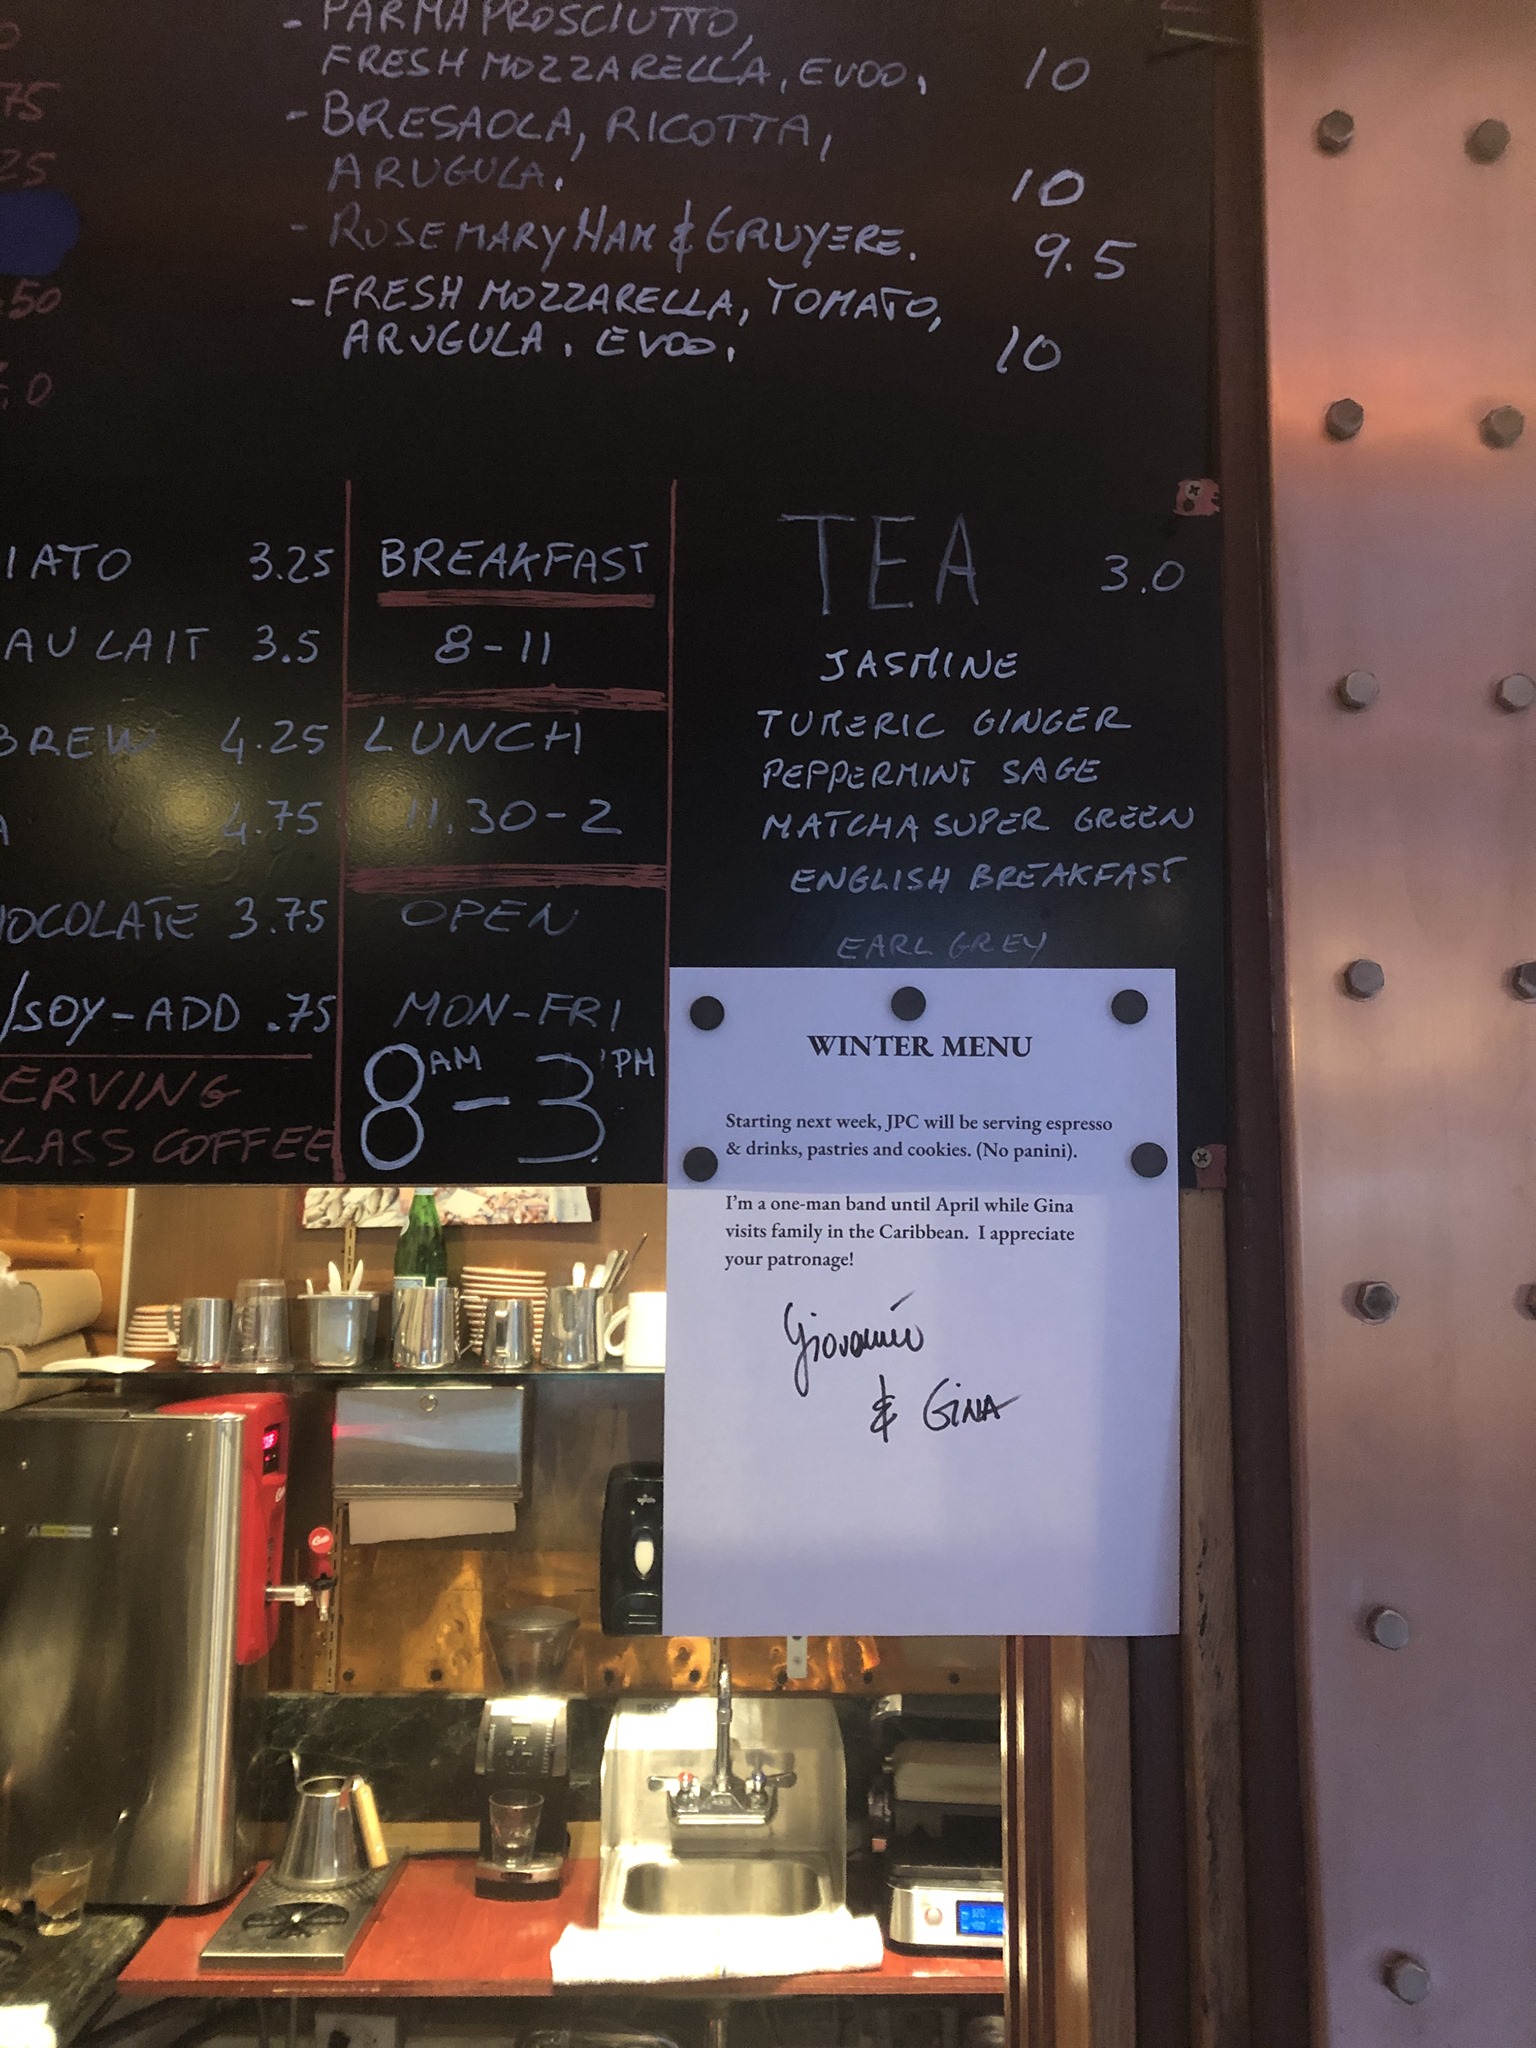 - PARMA PROSCIUTTO,
FRESH MOZZARELLA, EVOO. 10
- BRESAOLA, RICOTTA,
ARUGULA. 10
- ROSEMARY HAM & GRUYERE. 9.5
- FRESH MOZZARELLA, TOMATO,
ARUGULA. EVOO. 10
75
25
.50
IATO 3.25
AU LAIT 3.5
BREW 4.25
A 4.75
HOCOLATE 3.75
/SOY-ADD .75
ERVING
LASS COFFEE
BREAKFAST
8-11
LUNCH
11.30-2
OPEN
MON-FRI
8AM - 3PM
TEA 3.0
JASMINE
TUMERIC GINGER
PEPPERMINT SAGE
MATCHA SUPER GREEN
ENGLISH BREAKFAST
EARL GREY
WINTER MENU
Starting next week, JPC will be serving espresso
& drinks, pastries and cookies. (No panini).
I'm a one-man band until April while Gina
visits family in the Caribbean. I appreciate
your patronage!
Giovanni
& GINA